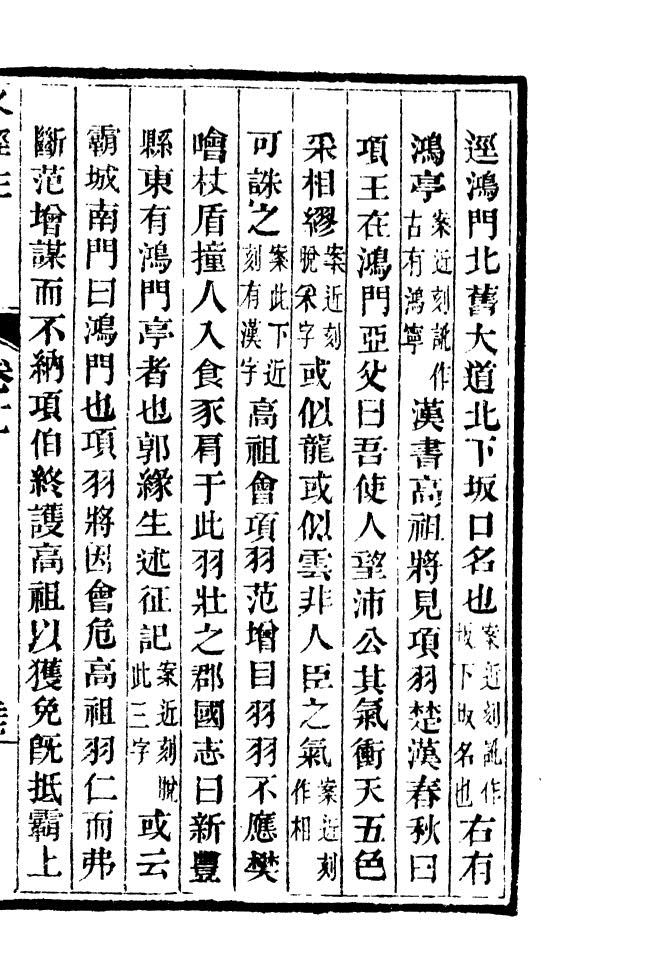 逕鴻門北舊大道北下坂口名也案近刻訛作坂下坂名也右有
鴻亭案近刻訛作古有鴻寧漢書高祖將見項羽楚漢春秋曰
項王在鴻門亞父曰吾使人望沛公其氣衝天五色
采相繆案近刻脫采字或似龍或似雲非人臣之氣案近刻作相
可誅之案此下近刻有漢字高祖會項羽范增目羽羽不應樊
噲杖盾撞人入食豕肩于此羽壯之郡國志曰新豐
縣東有鴻門亭者也郭緣生述征記案近刻脫此三字或云
霸城南門曰鴻門也項羽將因會危高祖羽仁而弗
斷范增謀而不納項伯終護高祖以獲免既抵霸上
水經注 卷十